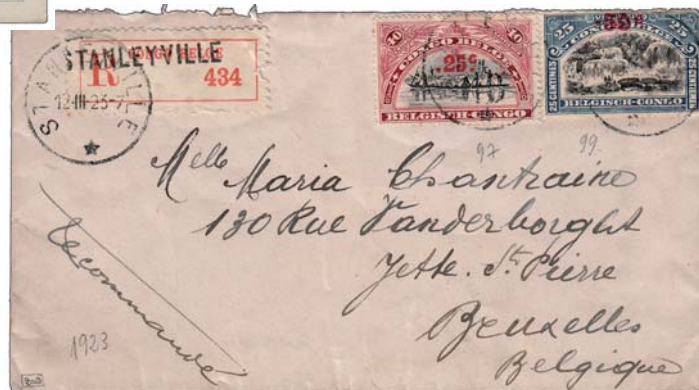 CONGO BELGE
STANLEYVILLE
R 434
STANLEYVILLE
12-III-23-7
40 CONGO BELGE 40
25c
BELGISCH-CONGO
25 CONGO BELGE 25
50c
25 CENTIMES
25 CENTIMES
BELGISCH-CONGO
97
99.
Melle Maria Chantraine
130 Rue Vanderborght
Jette. St Pierre
Bruxelles
Belgique
Recommandé
1923